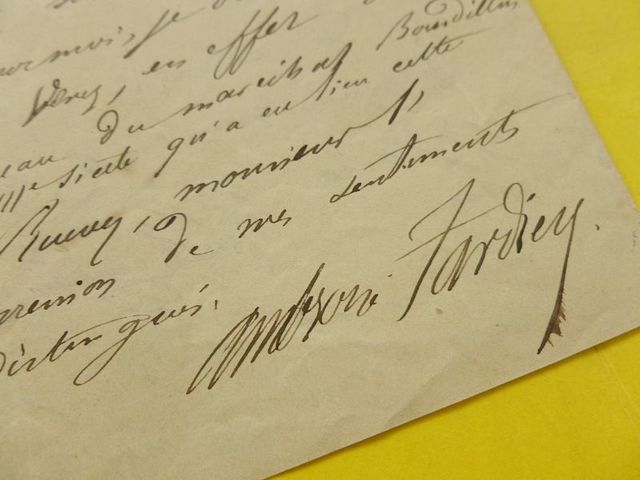 mois, je
, en effet
du maréchal Bourdillon
siecle qu'a eu lieu cette
Recevez, monsieur l,
de mes sentiments
distingués.
ambroise Tardieu.